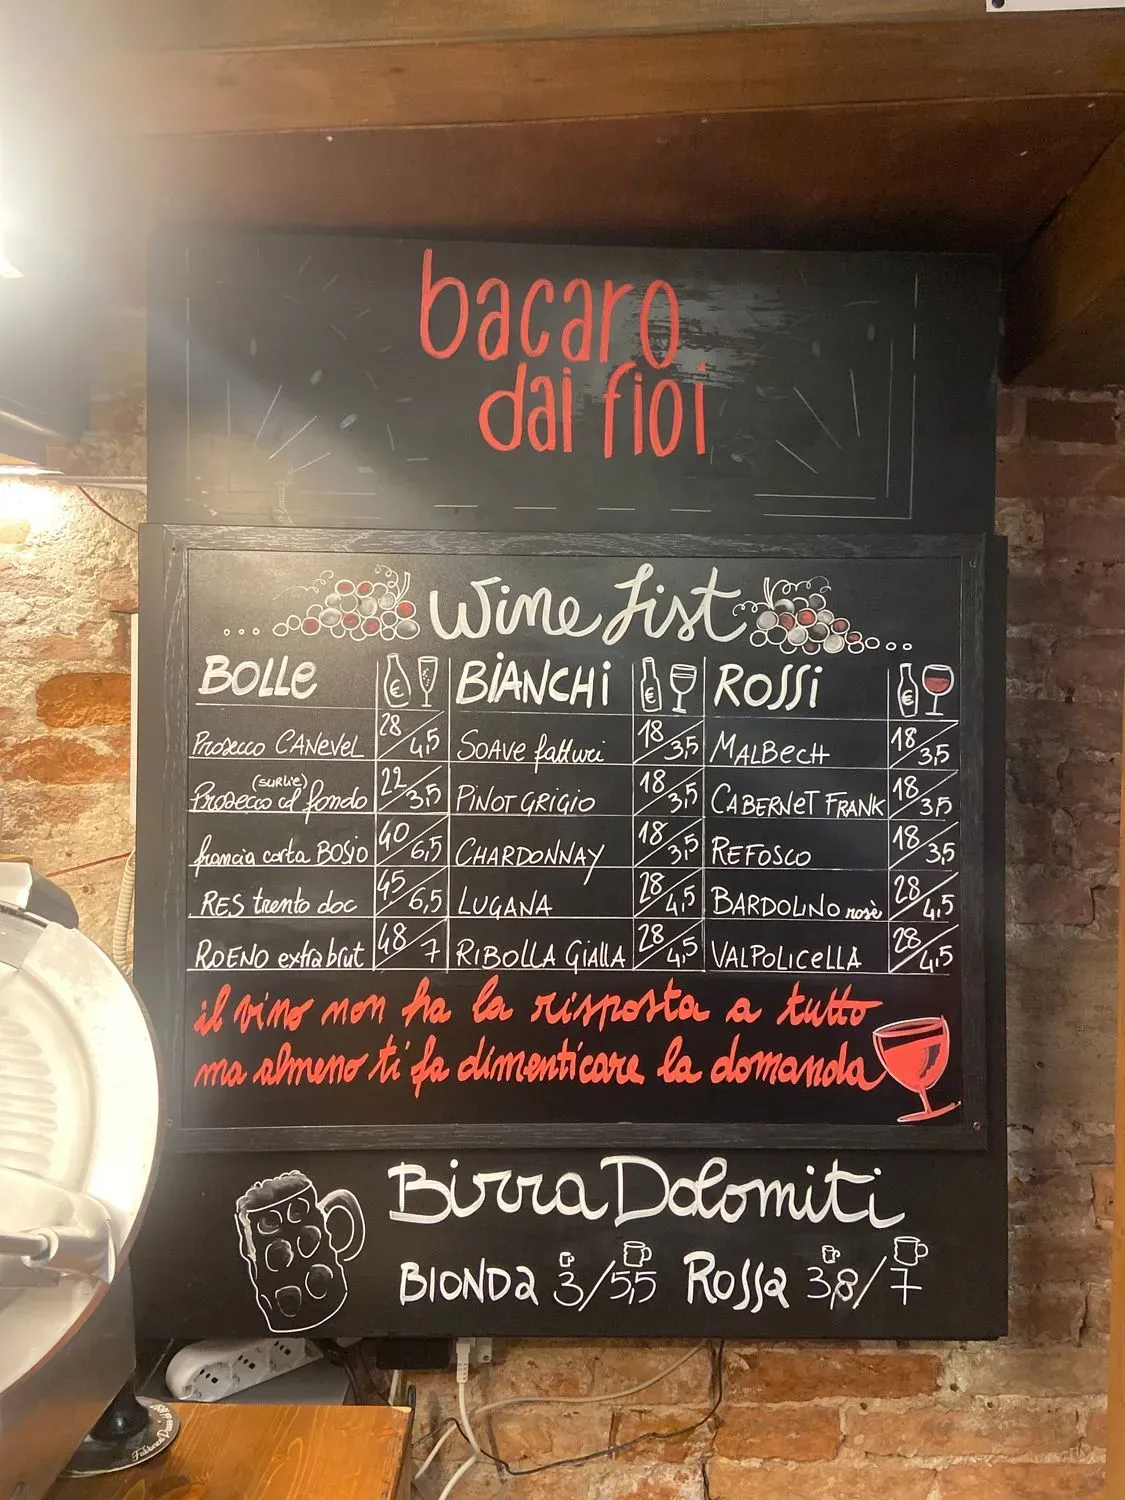 bacaro
dai fioi
Wine List
BOLLE € BIANCHI € ROSSI €
Prosecco CANEVEL 28/4,5 SOAVE fattori 18/3,5 MALBECH 18/3,5
(SURLIE)
Prosecco col fondo 22/3,5 PINOT GRIGIO 18/3,5 CABERNET FRANK 18/3,5
francia corta BOSIO 40/6,5 CHARDONNAY 18/3,5 REFOSCO 18/3,5
RES trento doc 45/6,5 LUGANA 28/4,5 BARDOLINO rosè 28/4,5
ROENO extra brut 48/7 RIBOLLA GIALLA 28/4,5 VALPOLICELLA 28/4,5
il vino non ha la risposta a tutto
ma almeno ti fa dimenticare la domanda
Birra Dolomiti
BIONDA 3/5,5 ROSSA 3,8/7